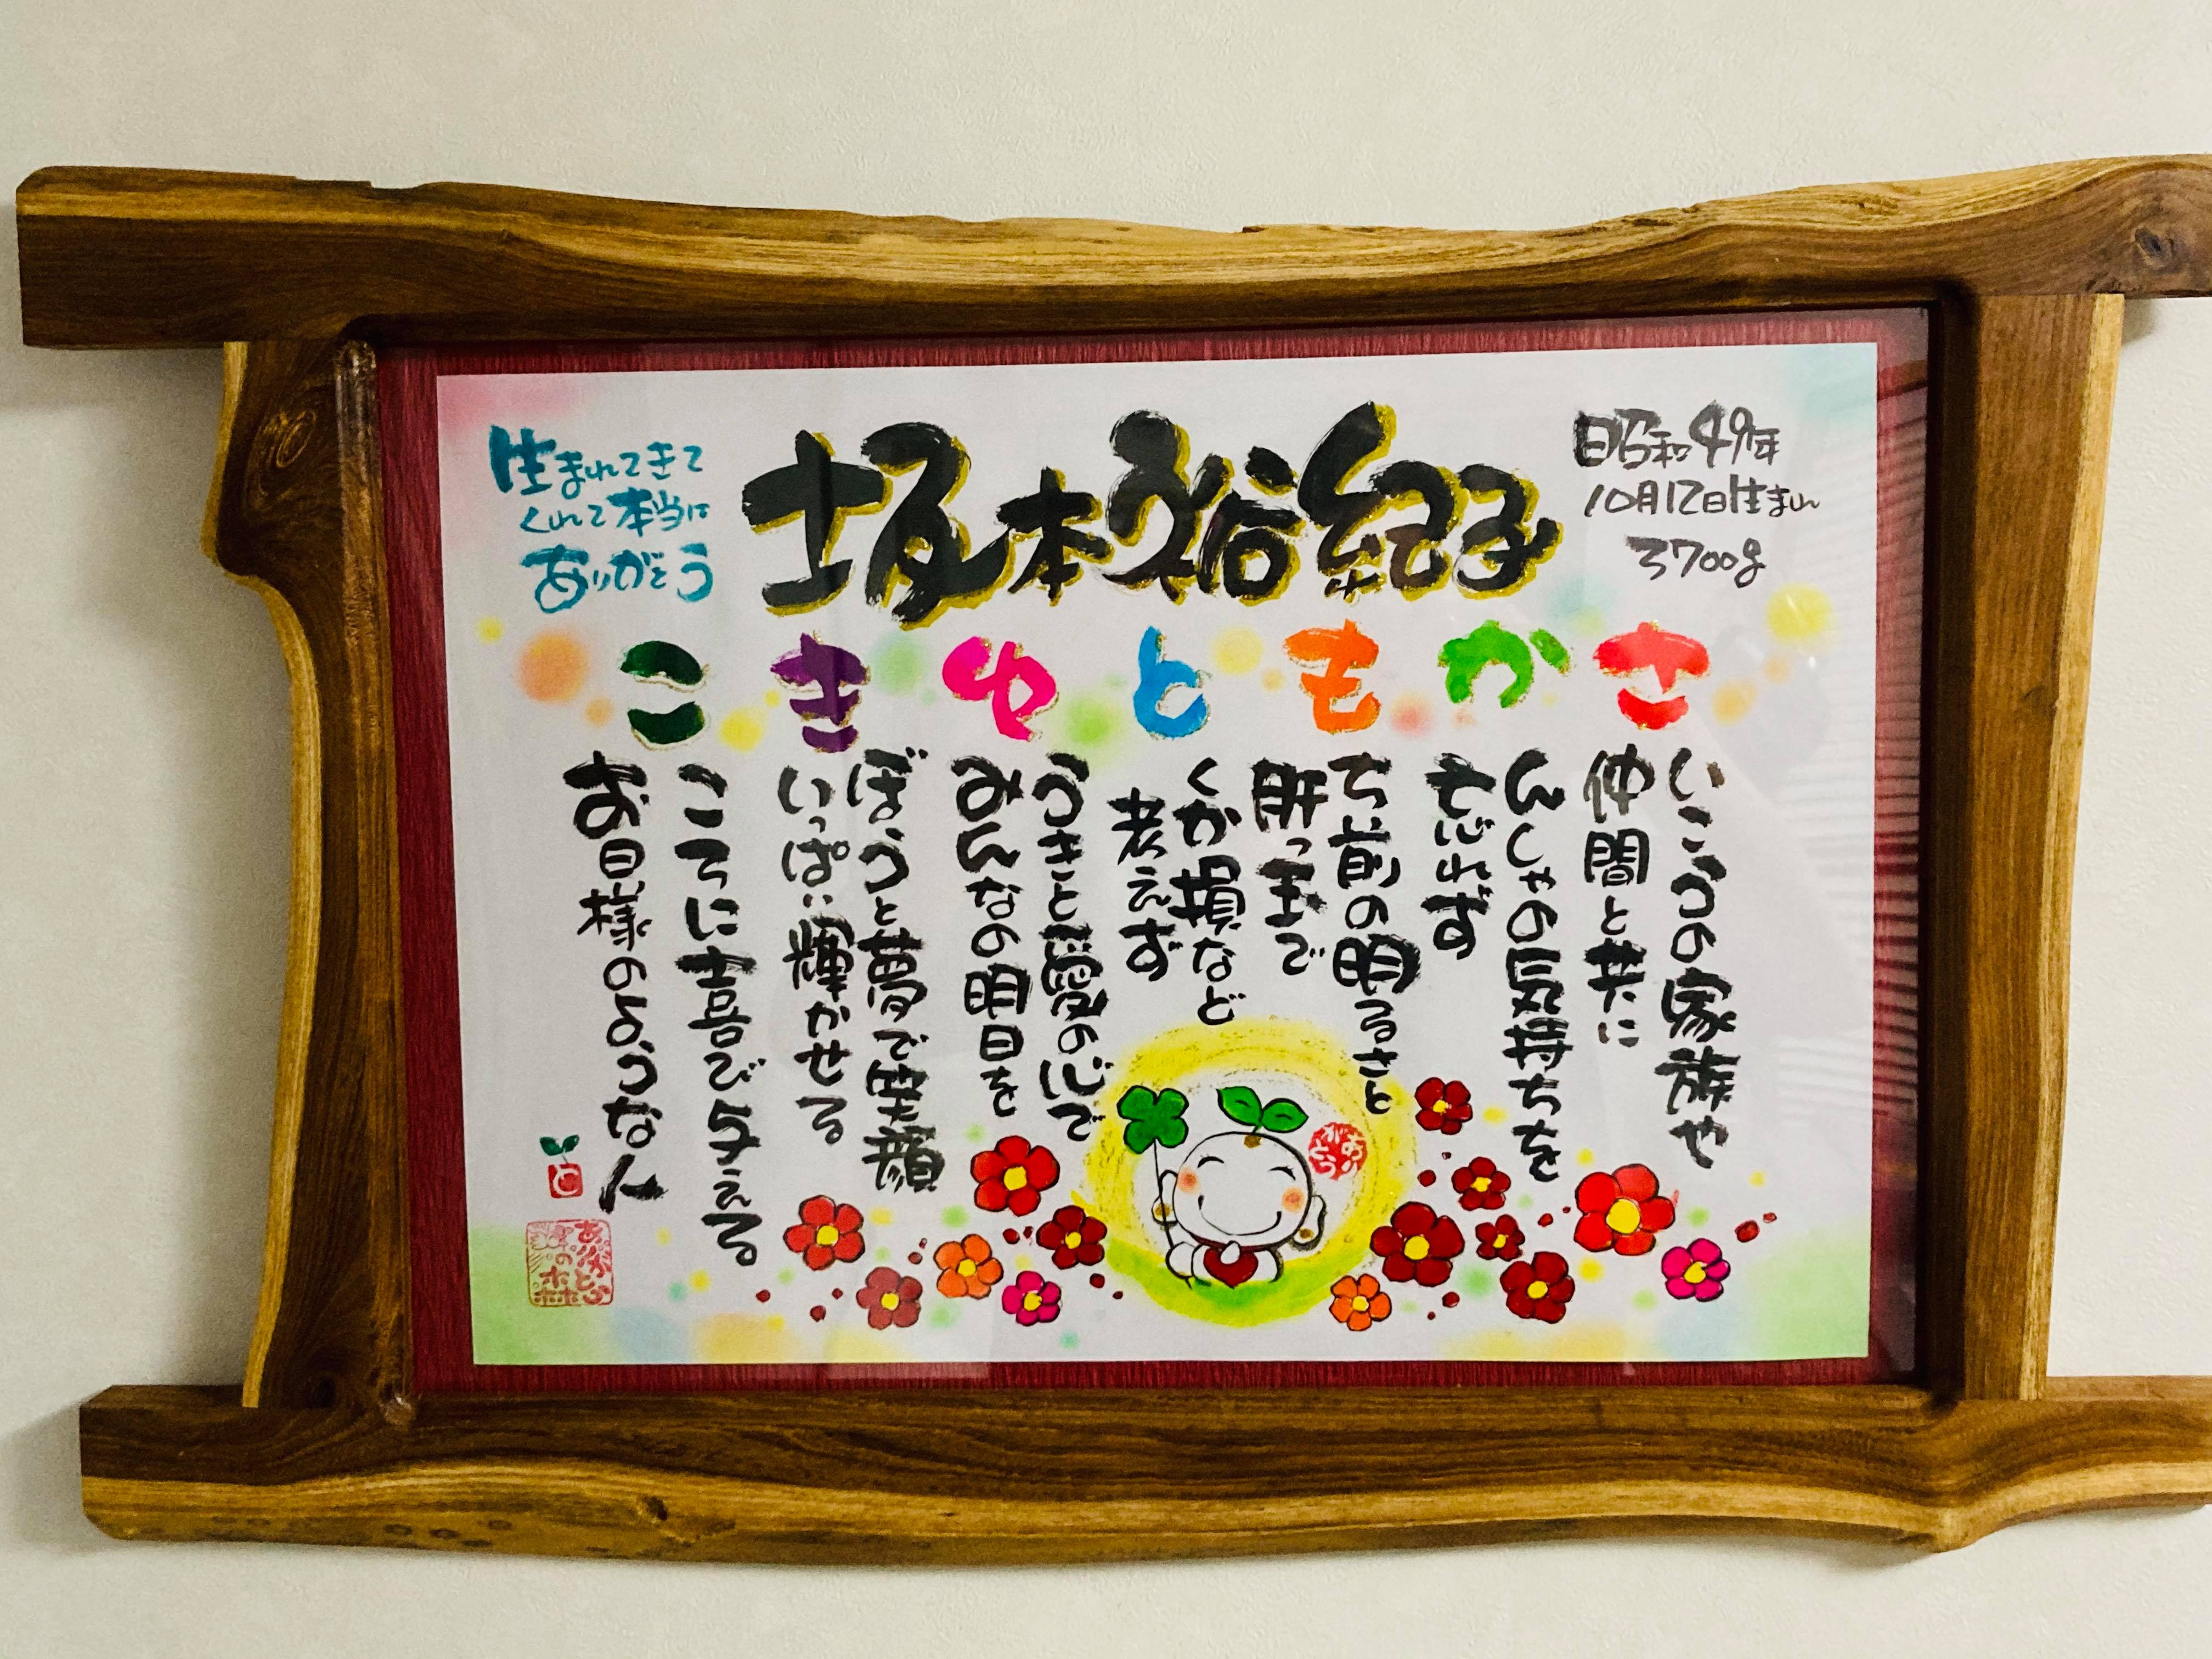 生まれてきて
くれて本当は
ありがとう
坂本裕紀子
昭和49年
10月12日生まれ
3700g
さ
いこうの家族や
仲間と共に
か
んしゃの気持ちを
忘れず
も
ち前の明るさと
肝っ玉で
と
くか損など
考えず
ゆ
うきと愛の心で
みんなの明日を
き
ぼうと夢で笑顔
いっぱい輝かせる
こ
こころに喜び与える
お日様のような人
ありがとう
ありがとう
の森